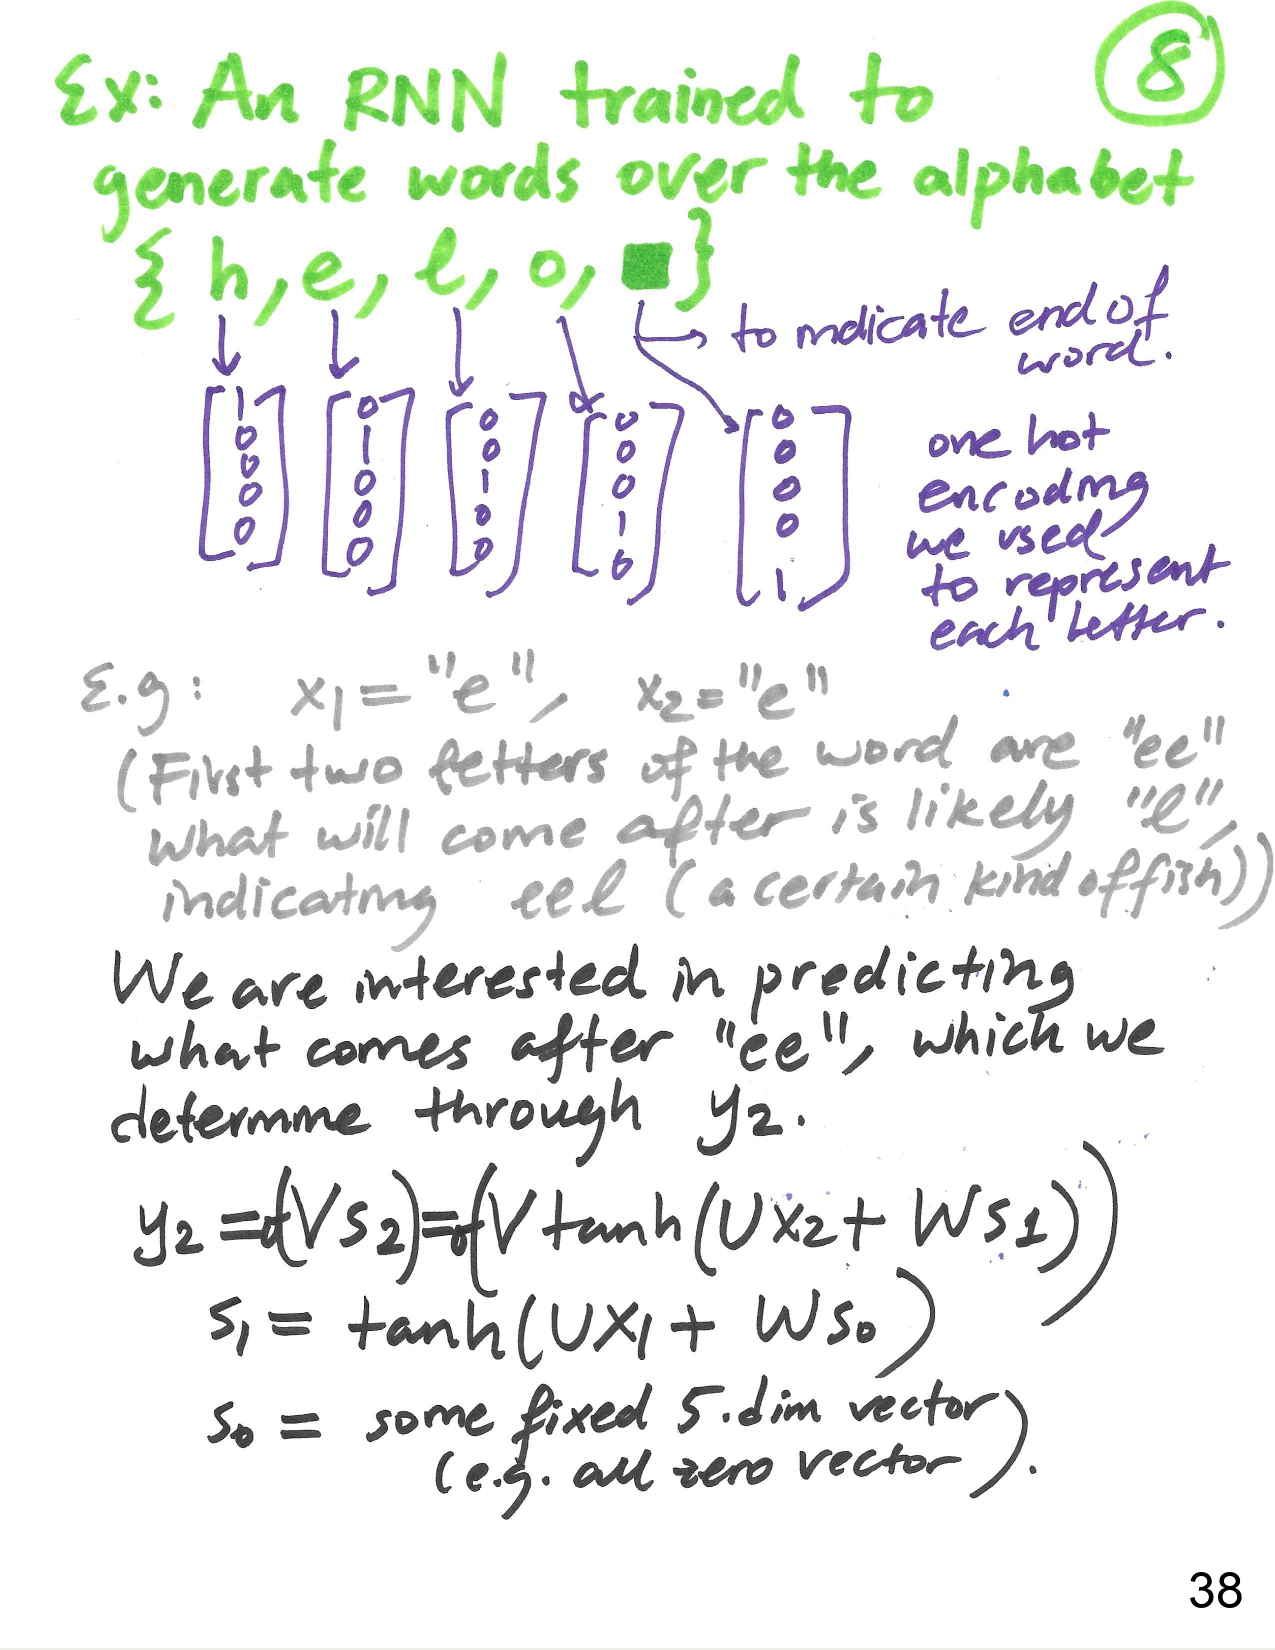 8
Ex: An RNN trained to
generate words over the alphabet
{ h, e, l, o, ■ }
→ to indicate end of
word.
[1 0 0 0 0] [0 1 0 0 0] [0 0 1 0 0] [0 0 0 1 0] [0 0 0 0 1]
one hot
encoding
we used
to represent
each letter.
E.g: x₁ = "e", x₂ = "e"
(First two letters of the word are "ee"
what will come after is likely "l",
indicating eel (a certain kind of fish))
We are interested in predicting
what comes after "ee", which we
determine through y₂.
y₂ = σ(V s₂) = σ(V tanh(U x₂ + W s₁))
s₁ = tanh(U x₁ + W s₀)
s₀ = some fixed 5.dim vector
(e.g. all zero vector).
38